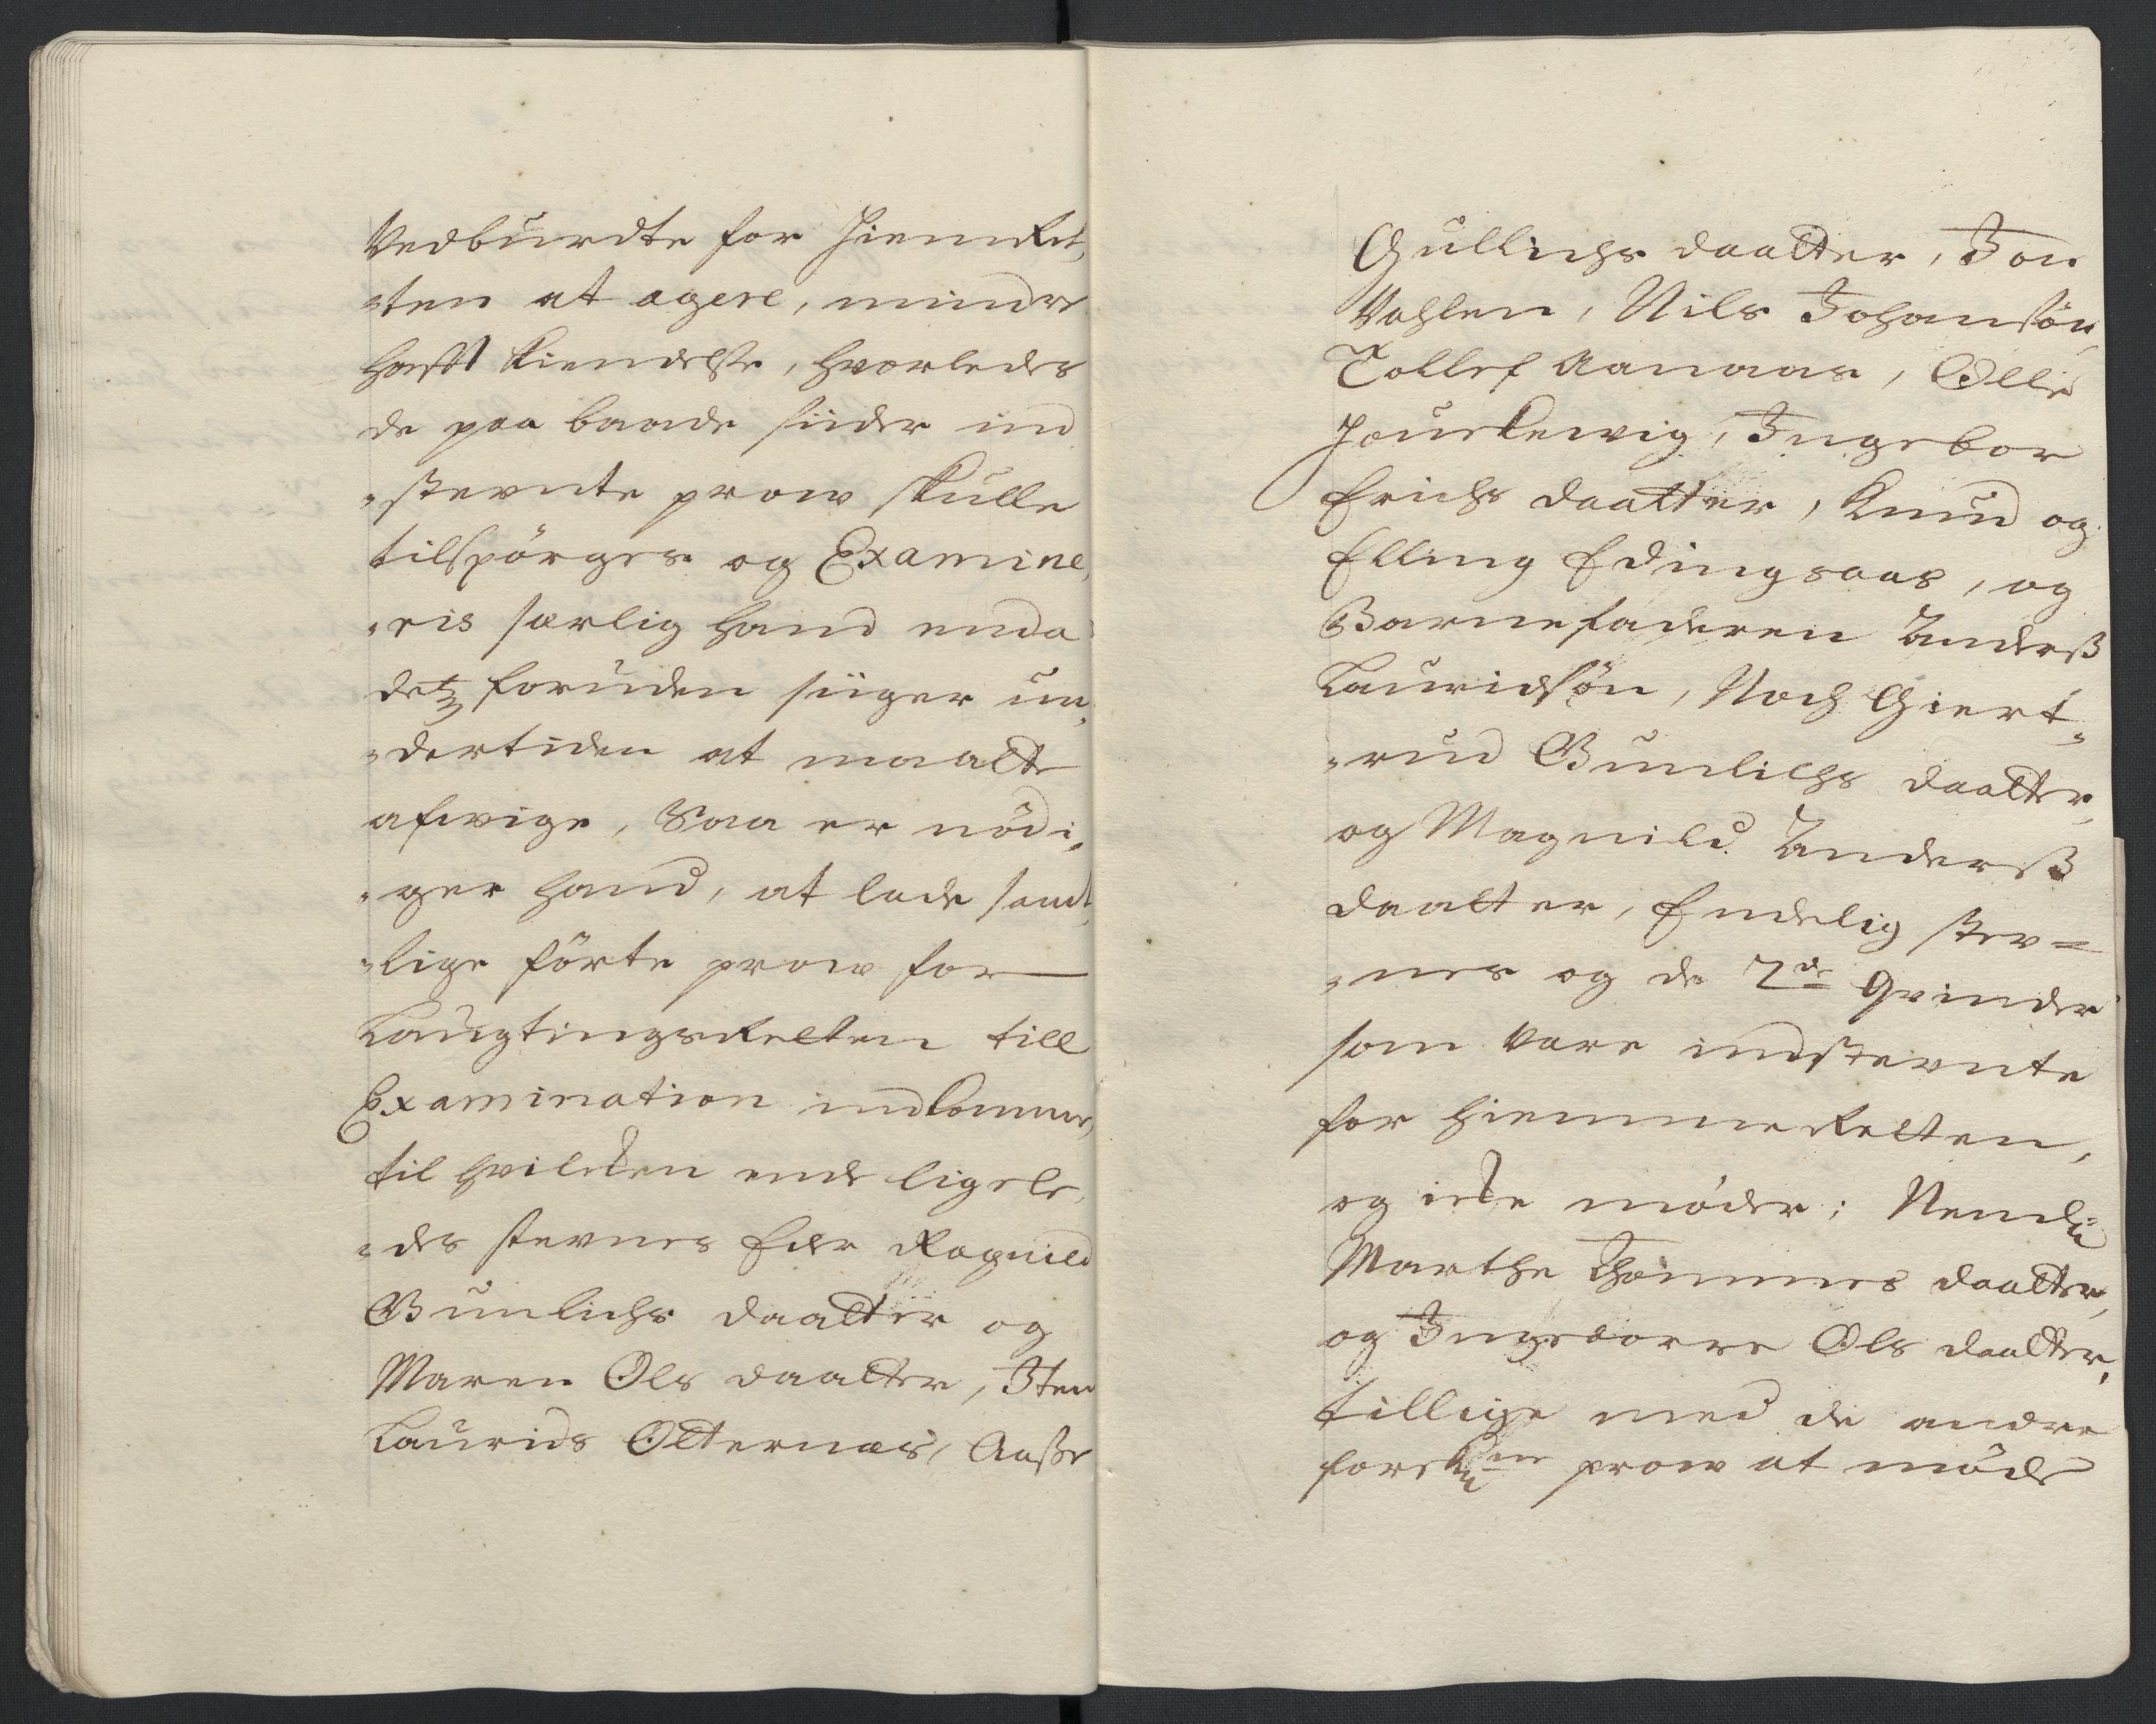 Vedburdte for Hiemret,
„ten at agere, mindre
hafft kiendelse, hvorledes
de paa baade siider ind
„stevnte prow skulle
tilspörges og Examine,
„ris særlig hand enda
detz foruden siiger un,
„dertiden at maalt
afwige, Saa er nödi,
„ger hand, at lade samt,
„lige förte prow for
Laugtingsretten till
Examination indkomme,
til hvilken ende ligele,
„des stevnes hr Ragnild
Gunlichs daatter og
Maren Ols daatter, Item
Laurids Otternæs, Aasse
Gullichs daatter, Jon
Vahlen, Nils Johansön,
Tollef Aanaas, Olle
Houslewig, Ingebor
Erichs daatter, Knud og
Elling Edingsaas, og
Barnefaderen Anderß
Lauridsön, Noch Giert,
„rud Gunlichs daatter,
og Magnild Anderß
daatter, Endelig stev=
„nes og de 2de Qvinder
som vare indstevnte
for Hiemmeretten,
og icke möder; Nemlig
Marthe Thommes daatter,
og Ingeborre Ols daatter,
tillige med de andre
foreskne prow at möde